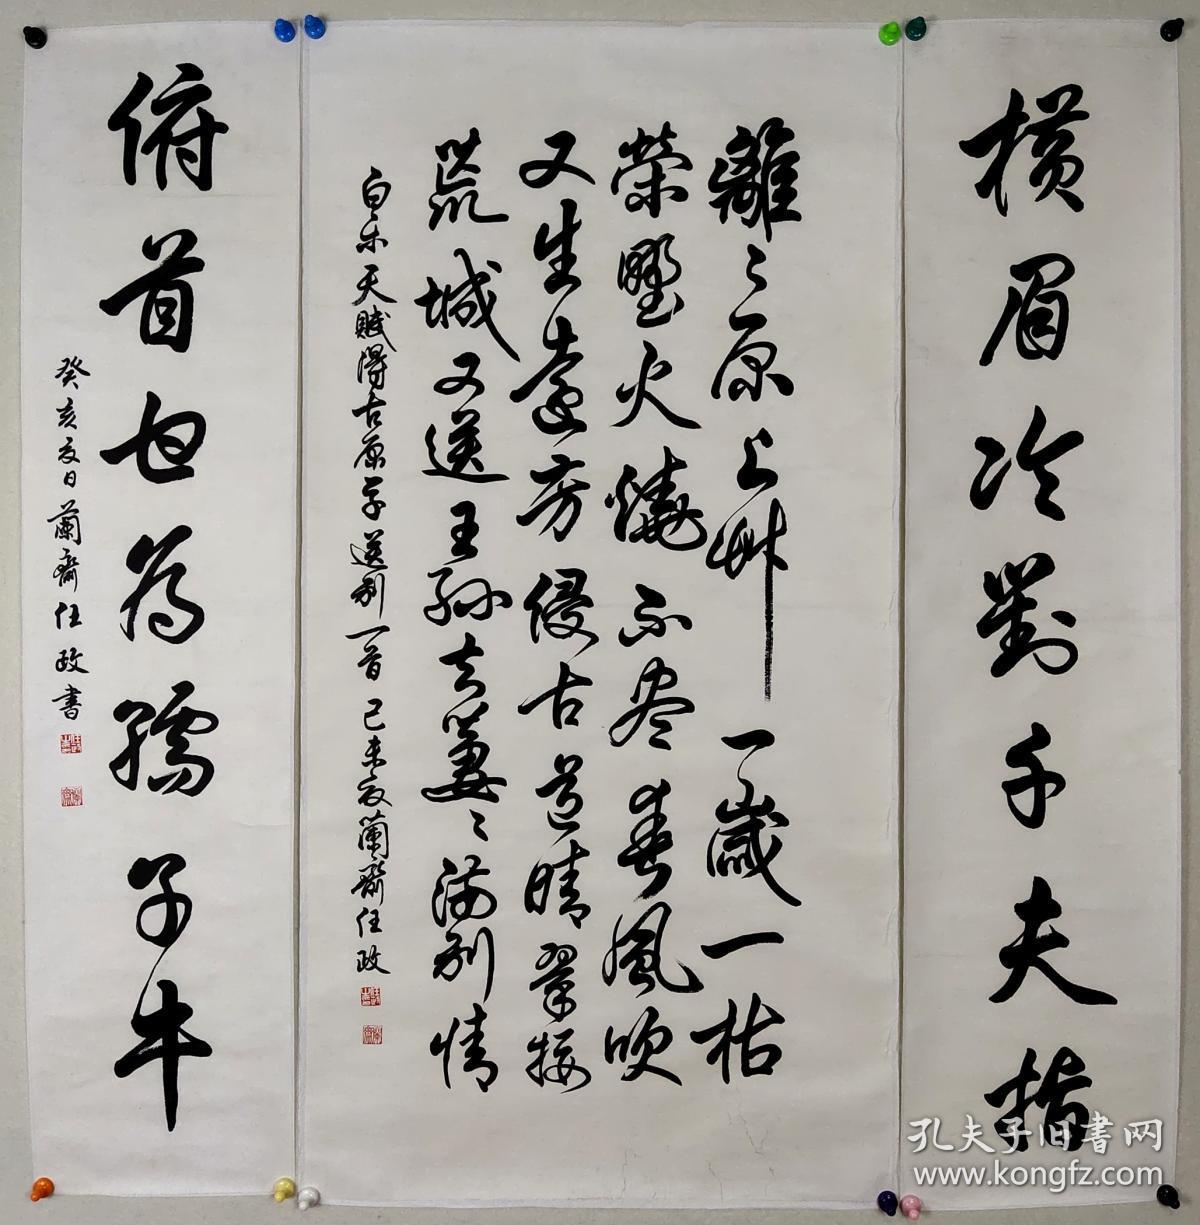 橫眉冷對千夫指
離〻原上艸一歲一枯
榮野火燒不盡春風吹
又生遠芳侵古道晴翠接
荒城又送王孫去萋〻滿別情
白樂天賦得古原草送別一首 己未夏蘭齋任政
俯首甘為孺子牛
癸亥夏日蘭齋任政書
孔夫子旧書网
www.kongfz.com